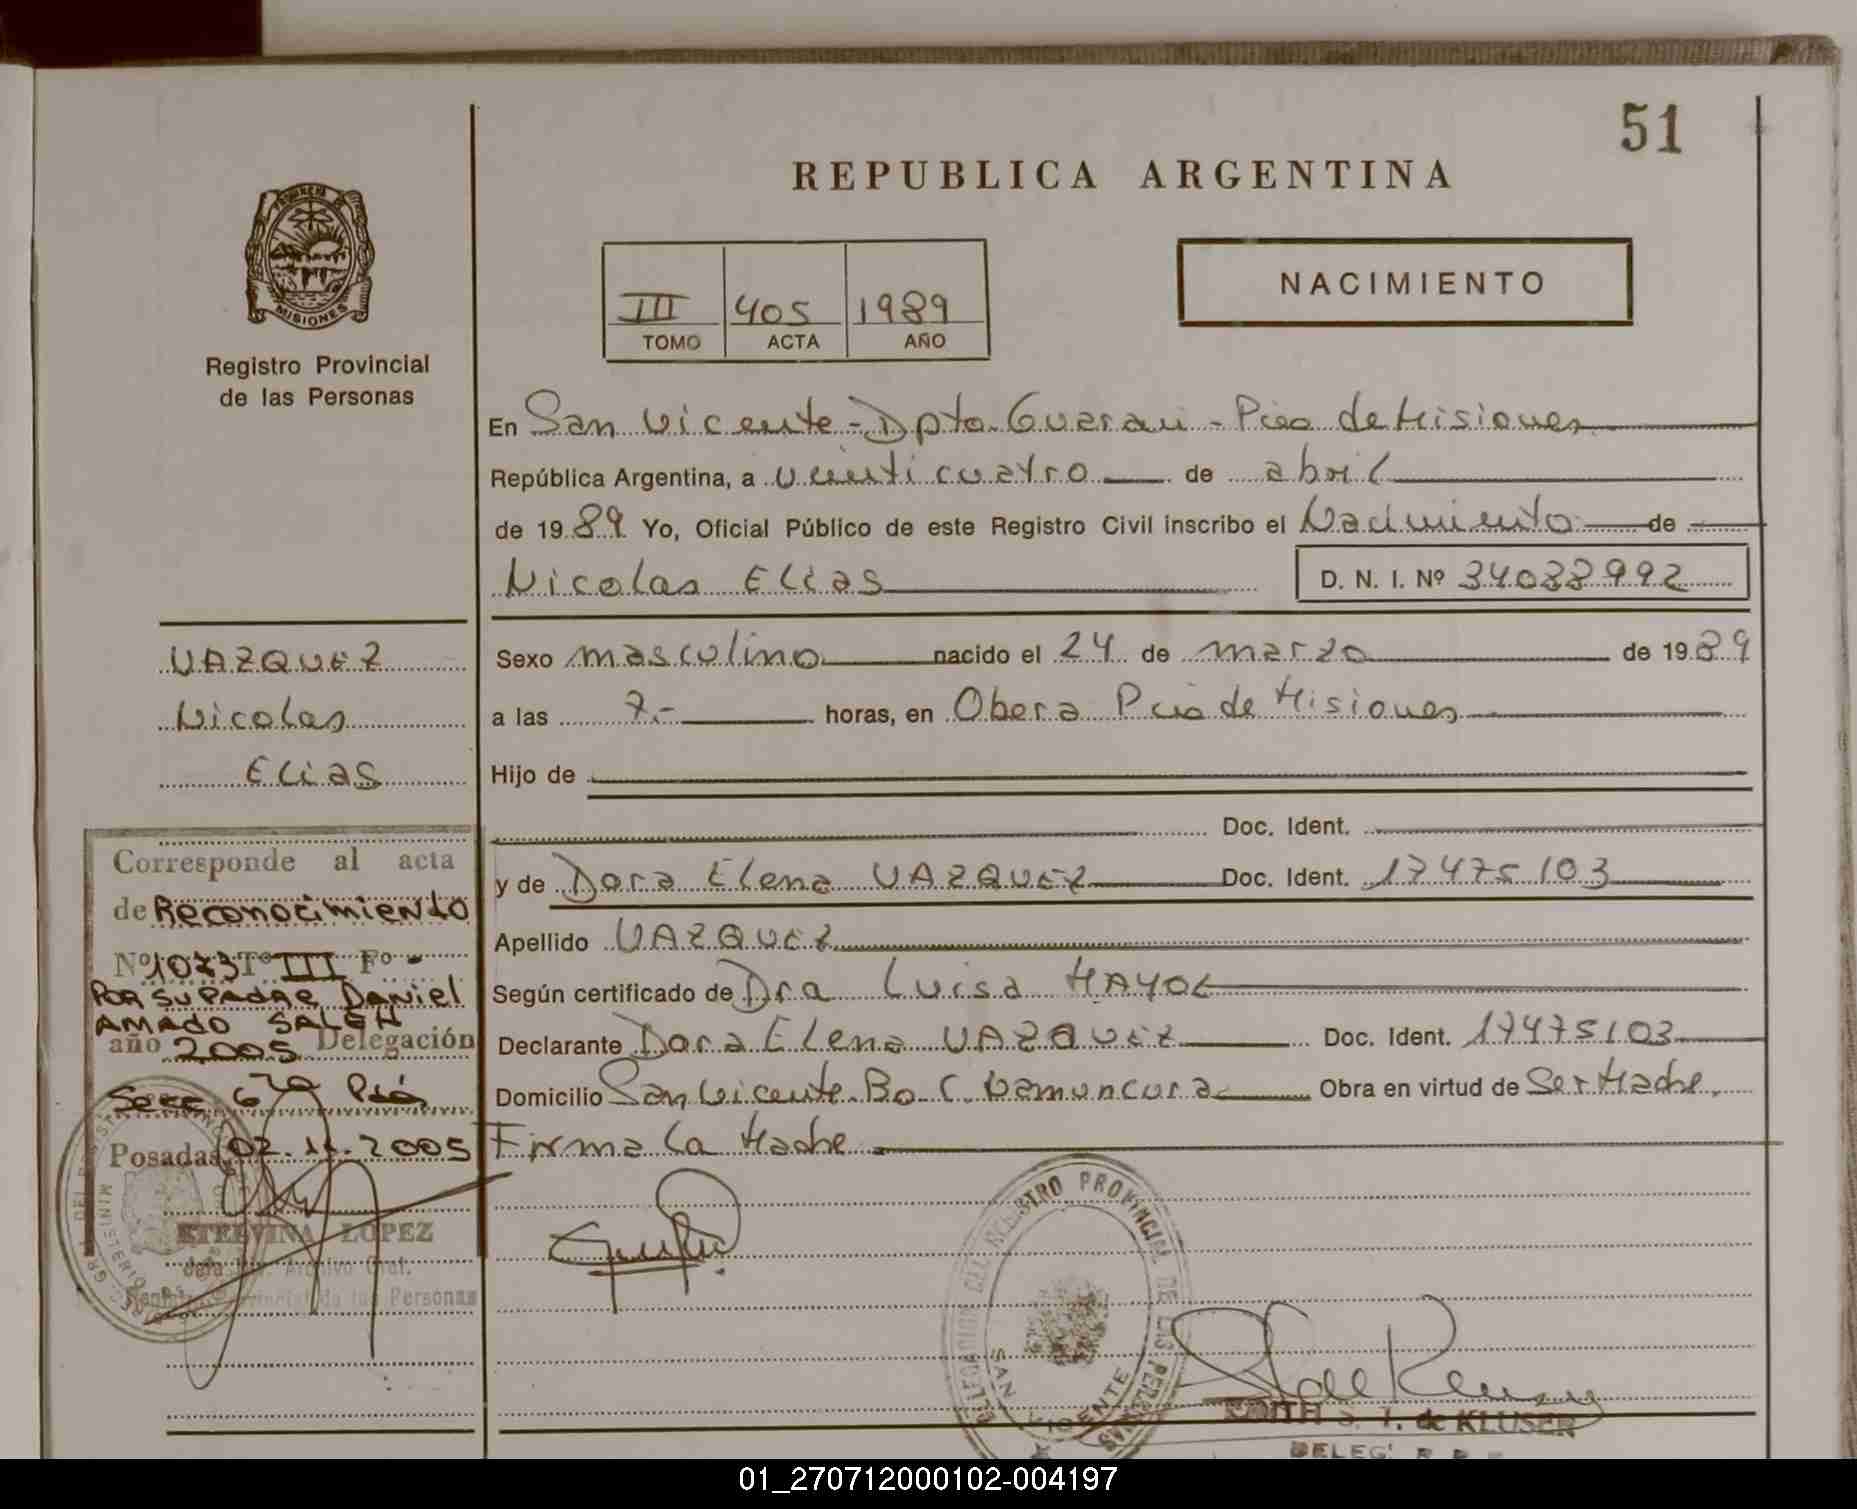 51
REPUBLICA ARGENTINA
PROVINCIA DE
MISIONES
Registro Provincial
de las Personas
III 405 1989
TOMO ACTA AÑO
NACIMIENTO
En San Vicente - Dpto Guarani - Pcia de Misiones
República Argentina, a veinticuatro de abril
de 1989 Yo, Oficial Público de este Registro Civil inscribo el Nacimiento de
Nicolas Elias D. N. I. Nº 34088992
VAZQUEZ
Nicolas
Elias
Sexo masculino nacido el 24 de marzo de 1989
a las 7.- horas, en Obera Pcia de Misiones
Hijo de
Doc. Ident.
y de Dora Elena VAZQUEZ Doc. Ident. 17475103
Apellido VAZQUEZ
Según certificado de Dra Luisa MAYOL
Declarante Dora Elena VAZQUEZ Doc. Ident. 17475103
Domicilio San Vicente Bo C. Namuncura Obra en virtud de Ser Madre.
Firma la Madre
Corresponde al acta
de Reconocimiento
Nº 1073 Tº III Fº -
POR SU PADRE Daniel
AMADO SALEH
año 2005 Delegación
Secc 6ta Pdas
Posadas, 02.11.2005
ETELVINA LOPEZ
Jefa Archivo Gral.
Registro Provincial de las Personas
DELEGACION DEL REGISTRO PROVINCIAL DE LAS PERSONAS
SAN VICENTE
EDITH S. T. de KLUSER
DELEG. R. P.
01_270712000102-004197